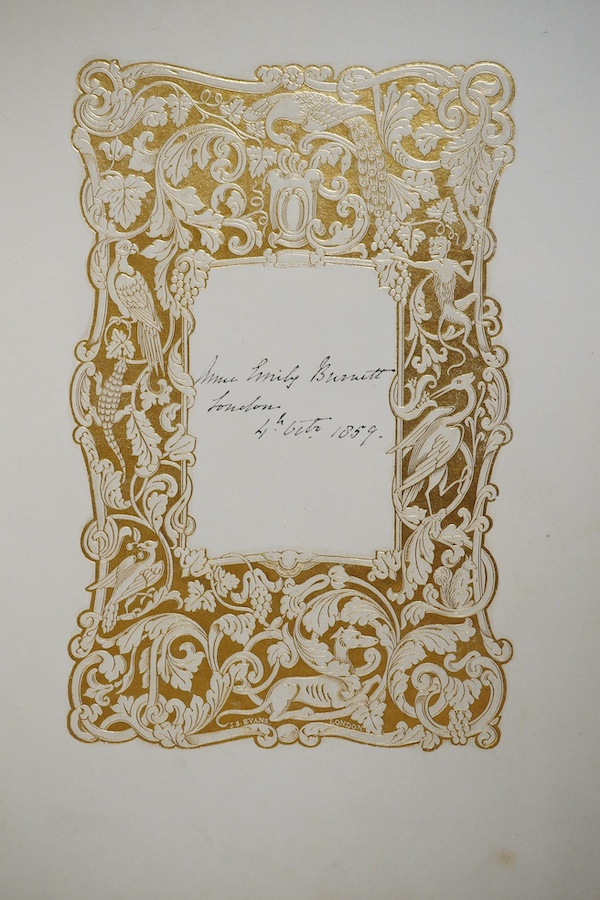 Anne Emily Burnett
London
4th Octr 1859.
J.S. EVANS LONDON